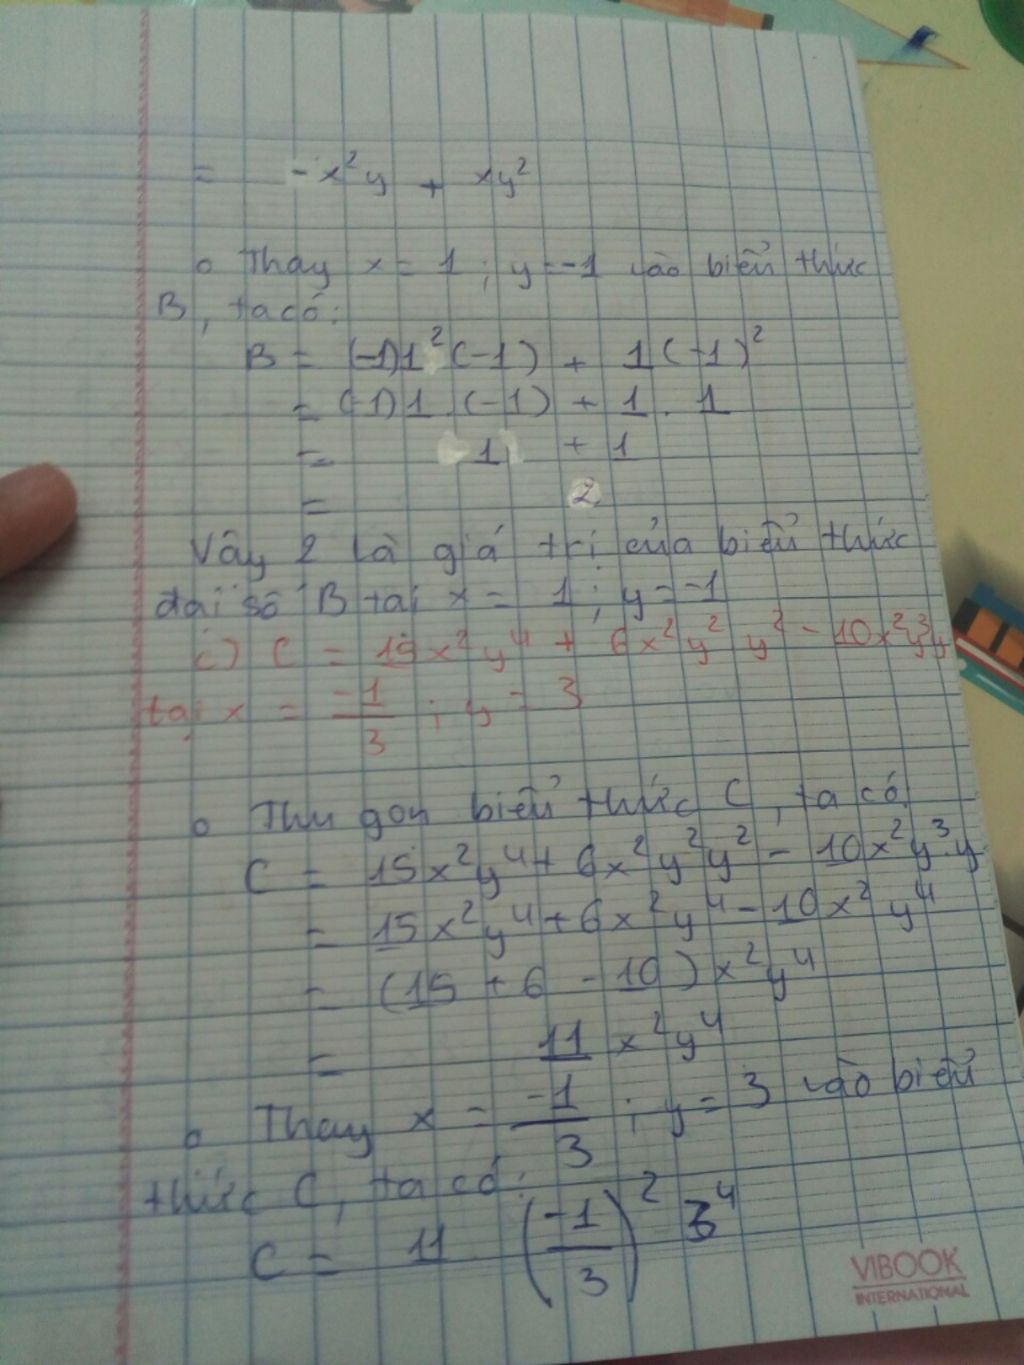 = -x²y + xy²
o Thay x = 1 ; y = -1 vào biểu thức
B, ta có:
B = (-1)1²(-1) + 1(-1)²
= (-1)1.(-1) + 1.1
= 1 + 1
= 2
Vậy 2 là giá trị của biểu thức
đại số B tại x = 1 ; y = -1
c) C = 15x²y⁴ + 6x²y² y² - 10x²y³y
tại x = -1/3 ; y = 3
o Thu gọn biểu thức C, ta có
C = 15x²y⁴ + 6x²y²y² - 10x²y³.y
= 15x²y⁴ + 6x²y⁴ - 10x²y⁴
= (15 + 6 - 10)x²y⁴
= 11 x²y⁴
o Thay x = -1/3 ; y = 3 vào biểu
thức C, ta có:
C = 11 (-1/3)² 3⁴
VIBOOK
INTERNATIONAL